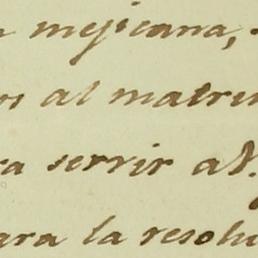 n mejicana,
os al matri
ra servir a V.
ara la resolu